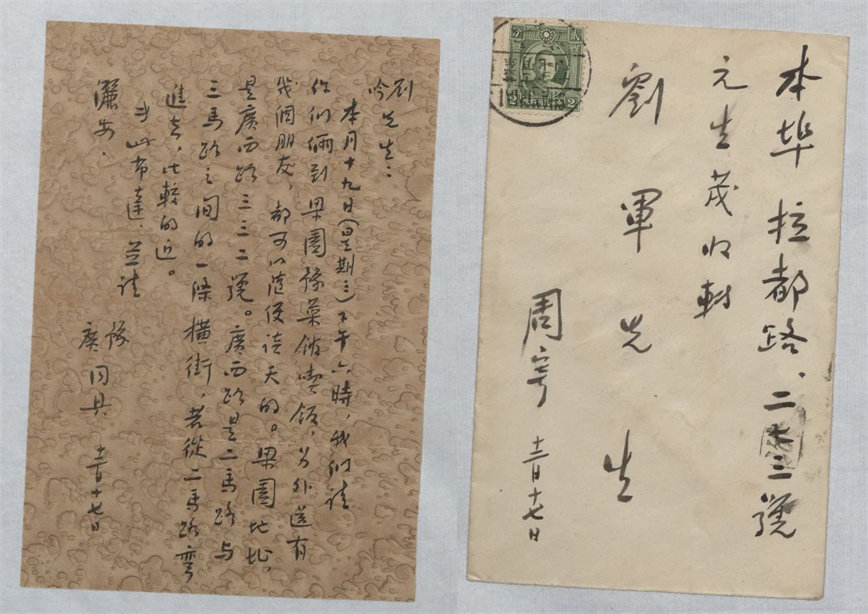 劉吟先生：
本月十九日(星期三)下午六時，我們請
你們倆到梁園豫菜館喫飯，另外還有
幾個朋友，都可以隨便談天的。梁園地址，
是廣西路三三二號。廣西路是二馬路與
三馬路之間的一條橫街，若從二馬路彎
進去，比較的近。
專此布達，並請
儷安。
豫廣同具 十二月十七日
本埠拉都路、二三號
元生茂收轉
劉軍先生
周寄 十二月十七日